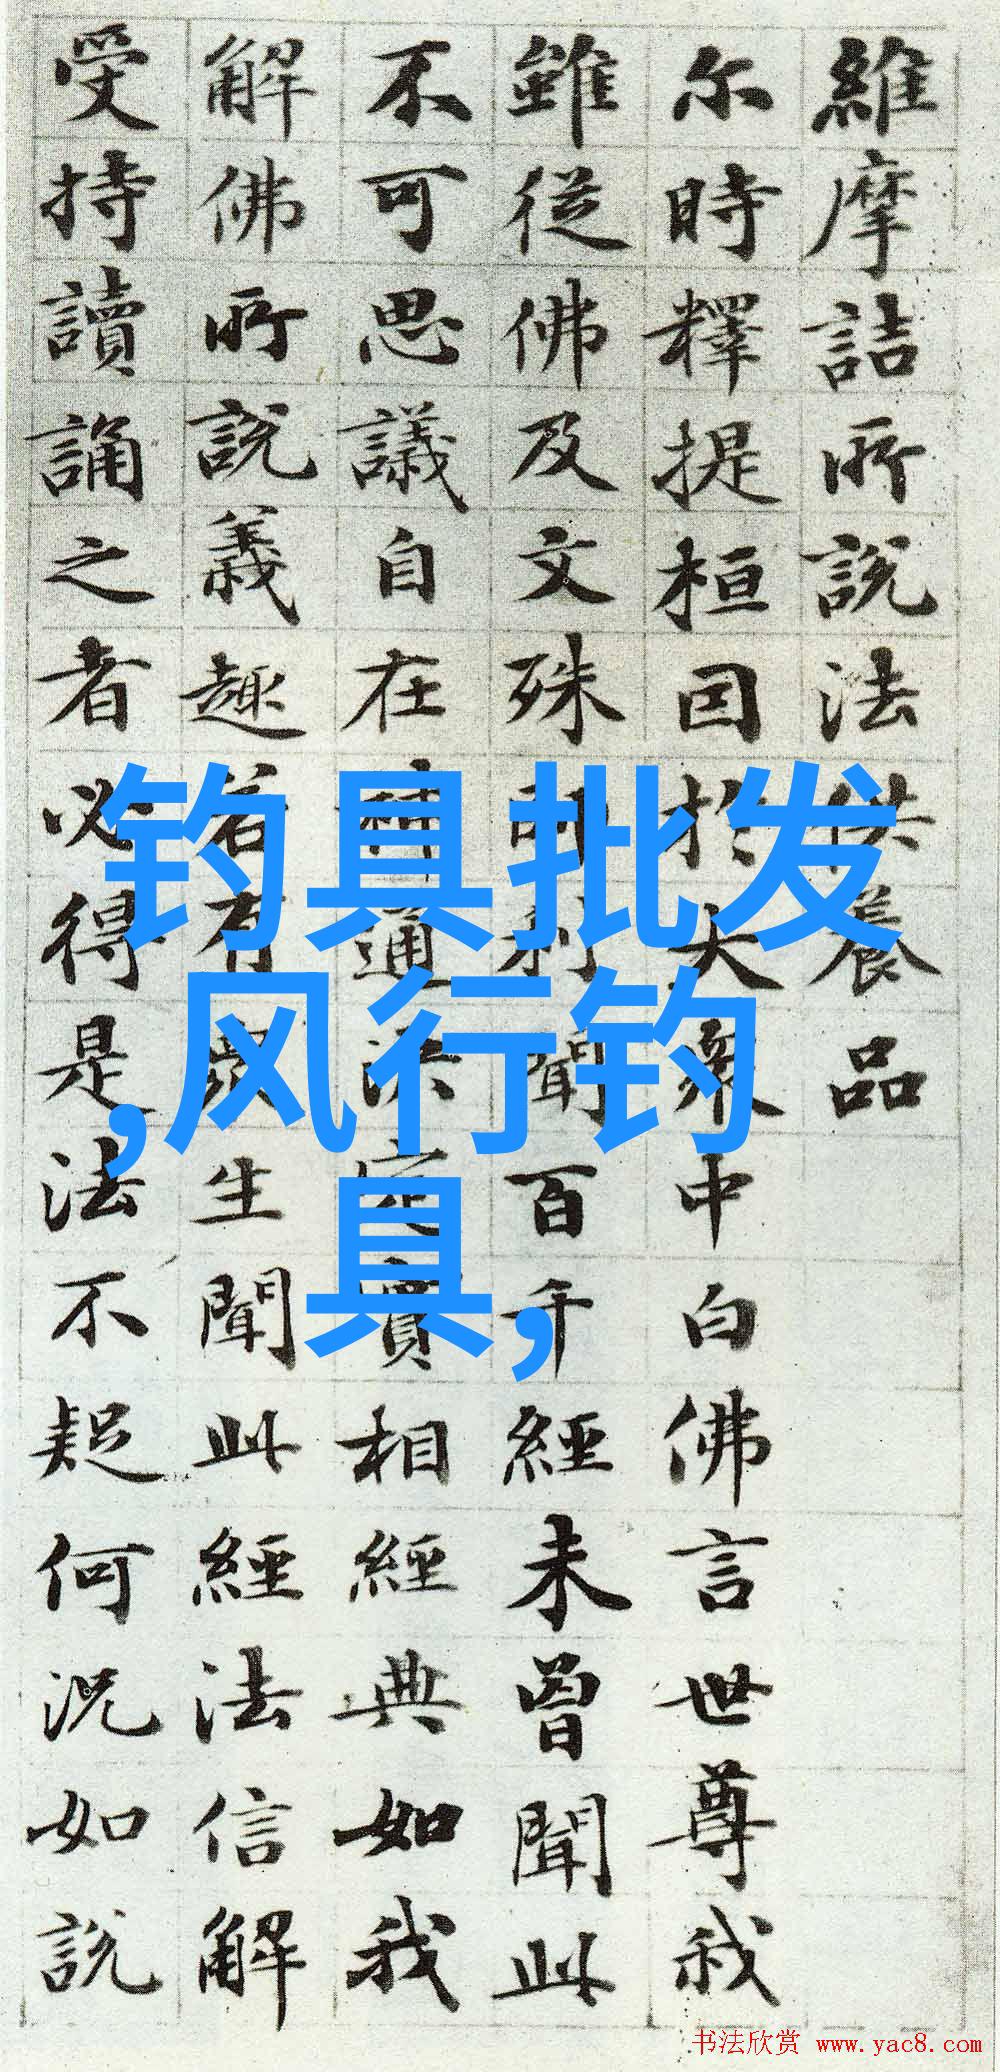 維摩詰所說法供養品
尔時釋提桓因於大衆中白佛言世尊我
雖從佛及文殊師利聞百千經未曾聞此
不可思議自在神通決定實相經典如我
解佛所說義趣若有衆生聞此經法信解
受持讀誦之者必得是法不疑何況如說
钓具批发
,风行钓
具,
书法欣赏 www.yac8.com